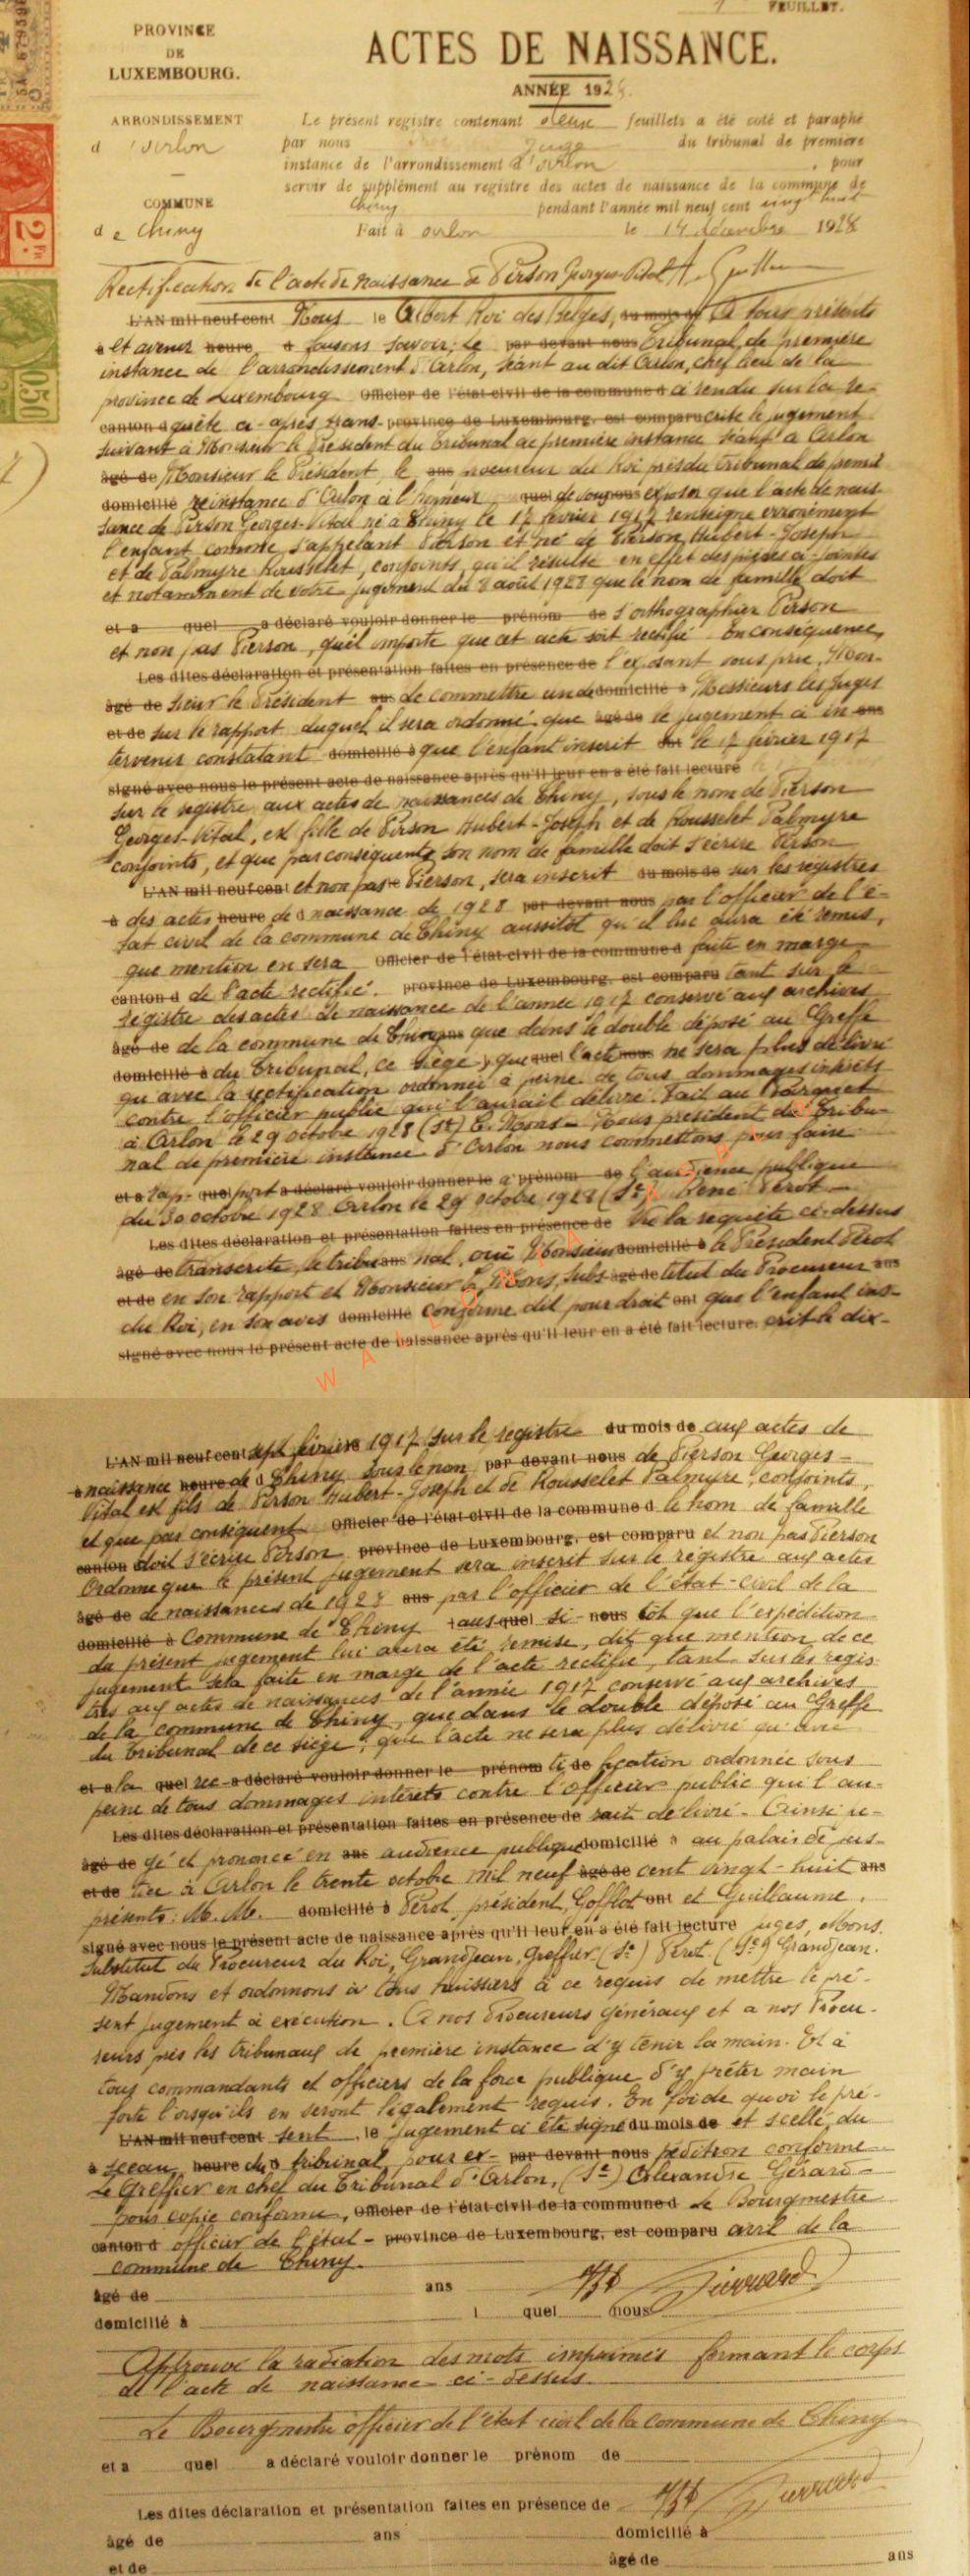 FEUILLET.
PROVINCE
DE
LUXEMBOURG.
ACTES DE NAISSANCE.
ANNÉE 1928.
ARRONDISSEMENT
d'Arlon
COMMUNE
de Chiny
Le présent registre contenant deux feuillets a été coté et paraphé
par nous Juge du tribunal de première
instance de l'arrondissement d'Arlon, pour
servir de supplément au registre des actes de naissance de la commune de
Chiny pendant l'année mil neuf cent vingt huit
Fait à Arlon le 14 décembre 1928
Rectification de l'acte de naissance de Pirson Georges-Vital
L'AN mil neuf cent Nous le Albert Roi des Belges, du mois de A tous présents
à et avenir heure à faisons savoir; le par devant nous tribunal de première
instance de l'arrondissement d'Arlon, séant au dit Arlon, chef lieu de la
province de Luxembourg Officier de l'état civil de la commune d a rendu sur la re-
canton d quête ci-après trans- province de Luxembourg, est comparu crite le jugement
suivant à Monsieur le Président du Tribunal de première instance séant à Arlon
âgé de Monsieur le Président le ans procureur du Roi près du tribunal de premiè
domicilié re instance d'Arlon a l'honneur quel de vous nous exposer que l'acte de nais-
sance de Pierson Georges-Vital né à Chiny le 17 février 1917 renseigne erronément
l'enfant comme s'appelant Pierson et né de Pierson Hubert-Joseph
et de Palmyre Rousselet, conjoints, qu'il résulte en effet des pièces ci-jointes
et notamment de votre jugement du 8 août 1928 que le nom de famille doit
et a quel a déclaré vouloir donner le prénom de s'orthographier Pirson
et non pas Pierson, qu'il importe que cet acte soit rectifié En conséquence,
Les dites déclaration et présentation faites en présence de l'exposant vous prie, Mon-
âgé de sieur le Président ans de commettre un de domicilié à Messieurs les Juges
et de sur le rapport duquel il sera ordonné que âgé de le jugement à in ans
tervenir constatant domicilié à que l'enfant inscrit ont le 17 février 1917
signé avec nous le présent acte de naissance après qu'il leur en a été fait lecture
sur le registre aux actes de naissances de Chiny, sous le nom de Pierson
Georges-Vital, est fils de Pirson Hubert-Joseph et de Rousselet Palmyre
conjoints, et que par conséquent son nom de famille doit s'écrire Pirson
L'AN mil neuf cent et non pas le Pierson, sera inscrit du mois de sur les registres
à des actes heure de d naissance de 1928 par devant nous par l'officier de l'é-
tat civil de la commune de Chiny aussitôt qu'il lui aura été remis,
que mention en sera Officier de l'état civil de la commune d faite en marge
canton d de l'acte rectifié. province de Luxembourg, est comparu tant sur le
registre des actes de naissance de l'année 1917 conservé aux archives
âgé de de la commune de Chiny ans que dans le double déposé au Greffe
domicilié à du Tribunal, ce siège, que quel l'acte nous ne sera plus délivré
qu'avec la rectification ordonnée à peine de tous dommages intérêts
contre l'officier public qui l'aurait délivré. Fait au Parquet
à Arlon le 29 octobre 1928 (St) E. Mons - Nous président du Tribu-
nal de première instance d'Arlon nous commettons pour faire
et a rap- quel port a déclaré vouloir donner le à prénom de l'audience publique
du 30 octobre 1928 Arlon le 29 octobre 1928 (Sé) René Pérot
Les dites déclaration et présentation faites en présence de Vu la requête ci-dessus
âgé de transcrite, le tribu ans nal, ouï Monsieur domicilié à le Président Pérot
et de en son rapport et Monsieur E. Mons, subs âgé de titut du Procureur ans
du Roi, en son avis domicilié conforme dit pour droit ont que l'enfant ins-
signé avec nous le présent acte de naissance après qu'il leur en a été fait lecture. crit le dix-
L'AN mil neuf cent sept février 1917 sur le registre du mois de aux actes de
à naissance heure de d Chiny sous le nom par devant nous de Pierson Georges-
Vital est fils de Pirson Hubert-Joseph et de Rousselet Palmyre, conjoints,
et que par conséquent Officier de l'état civil de la commune d le nom de famille
canton doit s'écrire Pirson province de Luxembourg, est comparu et non pas Pierson
Ordonne que le présent jugement sera inscrit sur le registre aux actes
âgé de de naissances de 1928 ans par l'officier de l'état-civil de la
domicilié à Commune de Chiny aus quel si- nous tôt que l'expédition
du présent jugement lui aura été remise, dit que mention de ce
jugement sera faite en marge de l'acte rectifié, tant sur les regis-
tres aux actes de naissances de l'année 1917 conservé aux archives
de la commune de Chiny, que dans le double déposé au Greffe
du tribunal de ce siège, que l'acte ne sera plus délivré qu'avec
et a la quel rec- a déclaré vouloir donner le prénom ti de fication ordonnée sous
peine de tous dommages intérêts contre l'officier public qui l'au-
Les dites déclaration et présentation faites en présence de rait délivré - Ainsi ju-
âgé de gé et prononcé en ans audience publique domicilié à au palais de jus-
et de tice à Arlon le trente octobre mil neuf âgé de cent vingt-huit ans
présents: M. M. domicilié à Pérot, président, Gofflot ont et Guillaume,
signé avec nous le présent acte de naissance après qu'il leur en a été fait lecture juges, Mons,
Substitut du Procureur du Roi, Grandjean, Greffier. (Sé) Pérot (Sé) Grandjean.
Mandons et ordonnons à tous huissiers à ce requis de mettre le pré-
sent jugement à exécution. A nos Procureurs généraux et a nos Procu-
reurs près les tribunaux de première instance d'y tenir la main. Et à
tous commandants et officiers de la force publique d'y prêter main
forte lorsqu'ils en seront légalement requis. En foi de quoi le pré-
L'AN mil neuf cent sent le jugement a été signé du mois de et scellé du
à sceau heure du d tribunal, pour ex- par devant nous pédition conforme
Le Greffier en chef du Tribunal d'Arlon, (Sé) Alexandre Gérard
pour copie conforme, Officier de l'état civil de la commune d Le Bourgmestre
canton d officier de l'état - province de Luxembourg, est comparu civil de la
commune de Chiny.
âgé de ans
domicilié à quel nous
Approuvé la radiation des mots imprimés formant le corps
de l'acte de naissance ci-dessus
Le Bourgmestre officier de l'état civil de la Commune de Chiny
et a quel a déclaré vouloir donner le prénom de
Les dites déclaration et présentation faites en présence de
âgé de ans domicilié à
et de âgé de ans